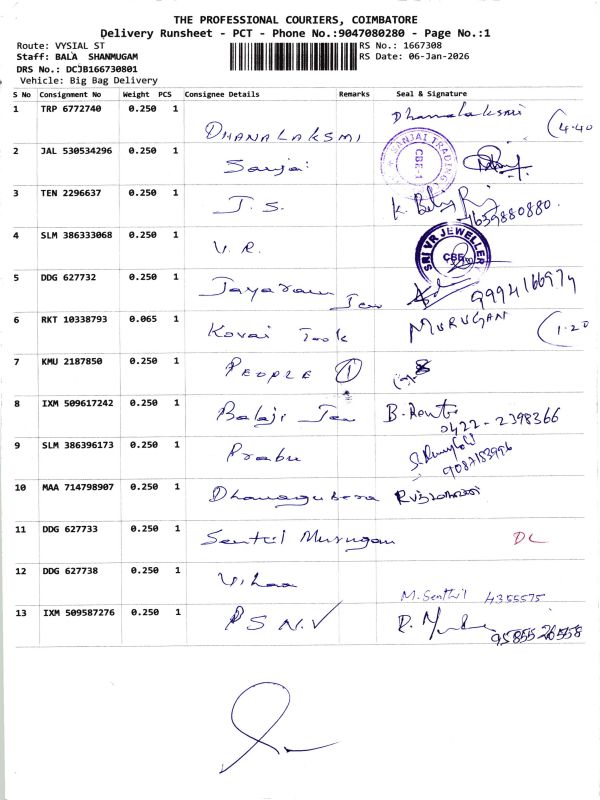 THE PROFESSIONAL COURIERS, COIMBATORE
Delivery Runsheet - PCT - Phone No.:9047080280 - Page No.:1
Route: VYSIAL ST
Staff: BALA SHANMUGAM
DRS No.: DCJB166730801
Vehicle: Big Bag Delivery
RS No.: 1667308
RS Date: 06-Jan-2026
S No Consignment No Weight PCS Consignee Details Remarks Seal & Signature
1 TRP 6772740 0.250 1 DHANALAKSMI Dhanalaksmi (4.40
2 JAL 530534296 0.250 1 Sanjai SANJAI TRADING CBE-1
3 TEN 2296637 0.250 1 J.S. K.
4 SLM 386333068 0.250 1 V.R. SRI VR JEWELLER CBE
5 DDG 627732 0.250 1 Jayaram Jew 9994166974
6 RKT 10338793 0.065 1 Kovai MURUGAN (1.20
7 KMU 2187850 0.250 1 PEOPLE 1
8 IXM 509617242 0.250 1 Balaji Jew B. 0422-2398366
9 SLM 386396173 0.250 1 Prabu
10 MAA 714798907 0.250 1
11 DDG 627733 0.250 1 Senthil Murugan DL
12 DDG 627738 0.250 1 M. Senthil 4355575
13 IXM 509587276 0.250 1 P S N.V R.